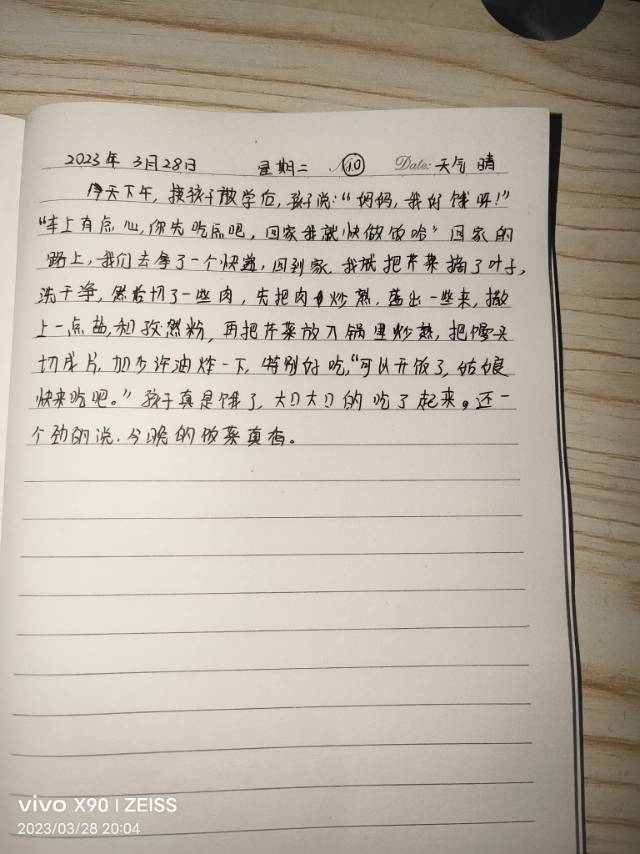 2023年 3月28日 星期二 No 10 Date: 天气 晴
今天下午,接孩子放学后,孩子说:“妈妈,我好饿呀!”
“车上有点心,你先吃点吧,回家我就快做饭哈”回家的
路上,我们去拿了一个快递,回到家,我就把芹菜摘了叶子,
洗干净,然后切了一些肉,先把肉炒熟,盛出一些来,撒
上一点盐,和孜然粉,再把芹菜放入锅里炒熟,把馒头
切成片,加少许油炸一下,特别好吃,“可以开饭了,姑娘
快来吃吧。”孩子真是饿了,大口大口的吃了起来。还一
个劲的说.今晚的饭菜真香。
vivo X90 | ZEISS
2023/03/28 20:04